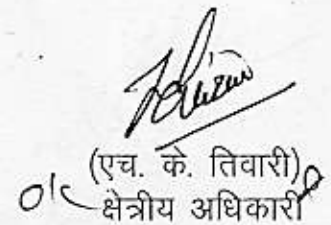 (एच. के. तिवारी)
o/c क्षेत्रीय अधिकारी